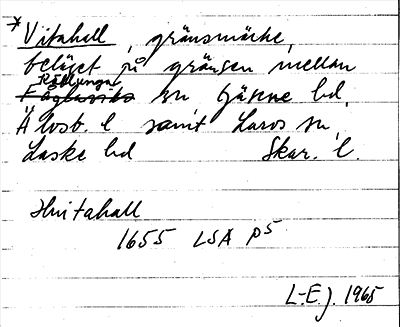 *Vitahall, gränsmärke,
beläget på gränsen mellan
Rällunga
sn Gäsene hd,
Älvsb. l samt Larvs sn,
Laske hd Skar. l.
Hvitahall
1655 LSA P5
L-E.J. 1965